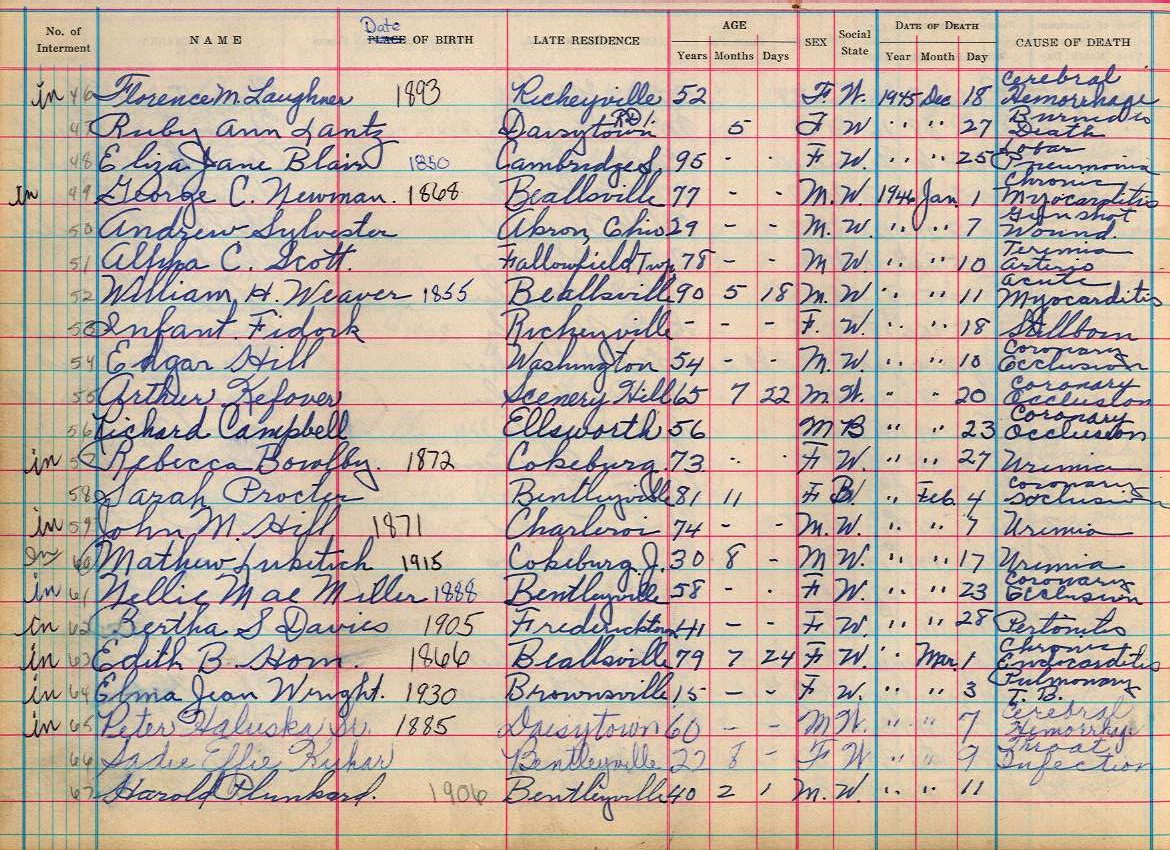 No. of Interment NAME Date PLACE OF BIRTH LATE RESIDENCE AGE Years Months Days SEX Social State DATE OF DEATH Year Month Day CAUSE OF DEATH
in 46 Florence M. Laughner 1893 Richeyville 52 F. W. 1945 Dec 18 Cerebral Hemorrhage
47 Ruby Ann Lantz Daisytown RD1. 5 F W " " 27 Burned to Death
48 Eliza Jane Blair 1850 Cambridge S. 95 - - F W. " " 25 Lobar Pneumonia
in 49 George C. Newman. 1868 Beallsville 77 - - M. W. 1946 Jan. 1 Chronic Myocarditis
50 Andrew Sylvester Akron, Ohio 29 - - M. W. " " 7 Gunshot Wound.
51 Alpha C. Scott. Fallowfield Twp. 78 - - M W. " " 10 Arterio
52 William H. Weaver 1855 Beallsville 90 5 18 M. W " " 11 Acute Myocarditis
53 Infant Fidork Richeyville - - - F. W. " " 18 Stillborn
54 Edgar Hill Washington 54 - - M. W. " " 10 Coronary Occlusion
55 Arthur Kefover Scenery Hill 65 7 22 M. W. " " 20 Coronary Occlusion
56 Richard Campbell Ellsworth 56 M B " " 23 Coronary Occlusion
in 57 Rebecca Bowlby. 1872 Cokeburg. 73 - - F W. " " 27 Uremia
58 Sarah Procter Bentleyville 81 11 F B " Feb. 4 Coronary Occlusion
in 59 John M. Hill 1871 Charleroi 74 - - M. W. " " 7 Uremia
in 60 Mathew Lukitich 1915 Cokeburg J. 30 8 - M W. " " 17 Uremia
in 61 Nellie Mae Miller 1888 Bentleyville 58 - - F W. " " 23 Coronary Occlusion
in 62 Bertha S Davies 1905 Fredericktown 41 - - F W. " " 28 Peritonitis
in 63 Edith B Horn. 1866 Beallsville 79 7 24 F W. " Mar. 1 Chronic Endocarditis
in 64 Elma Jean Wright. 1930 Brownsville 15 - - F W. " " 3 Pulmonary T. B.
in 65 Peter Haluska Sr. 1885 Daisytown 60 - - M W. " " 7 Cerebral Hemorrhage
66 Sadie Effie Kuhar Bentleyville 27 8 - F W " " 9 Throat Infection
67 Harold Plunkard. 1906 Bentleyville 40 2 1 M. W. " " 11